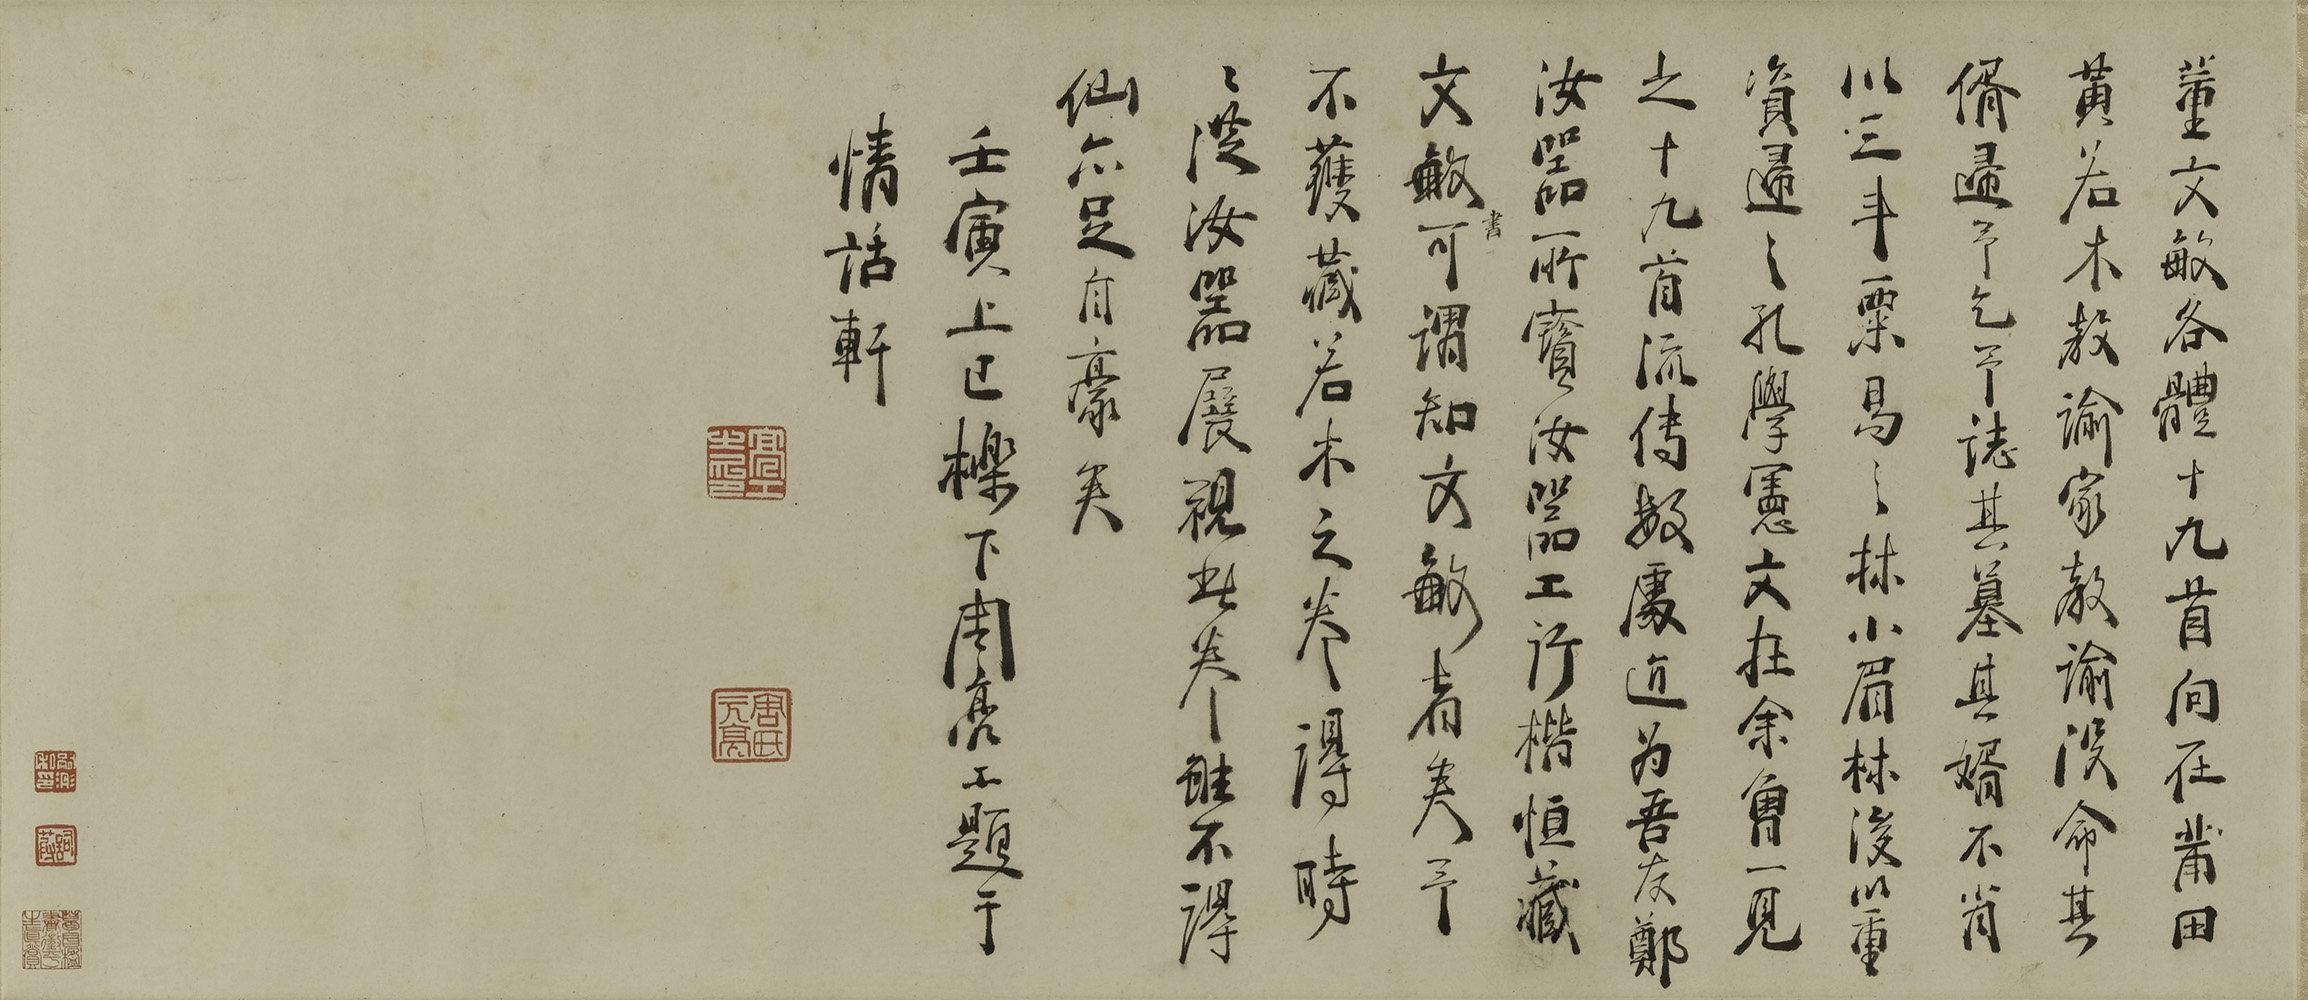 董文敏各體十九首向在莆田
黃若木教諭家教諭没命其
偦遺予乞予誌其墓其婿不肖
以三斗粟易之林小眉林後以重
資遺之孔學憲文在余曾一見
之十九首流傳数處近為吾友鄭
汝器所寶汝器工行楷恒藏
文敏書可謂知文敏者矣予
不獲藏若木之卷得時
時從汝器展視此卷雖不得
仙亦足自豪矣
壬寅上巳櫟下周亮工題于
情話軒
亮工之印
周氏元亮